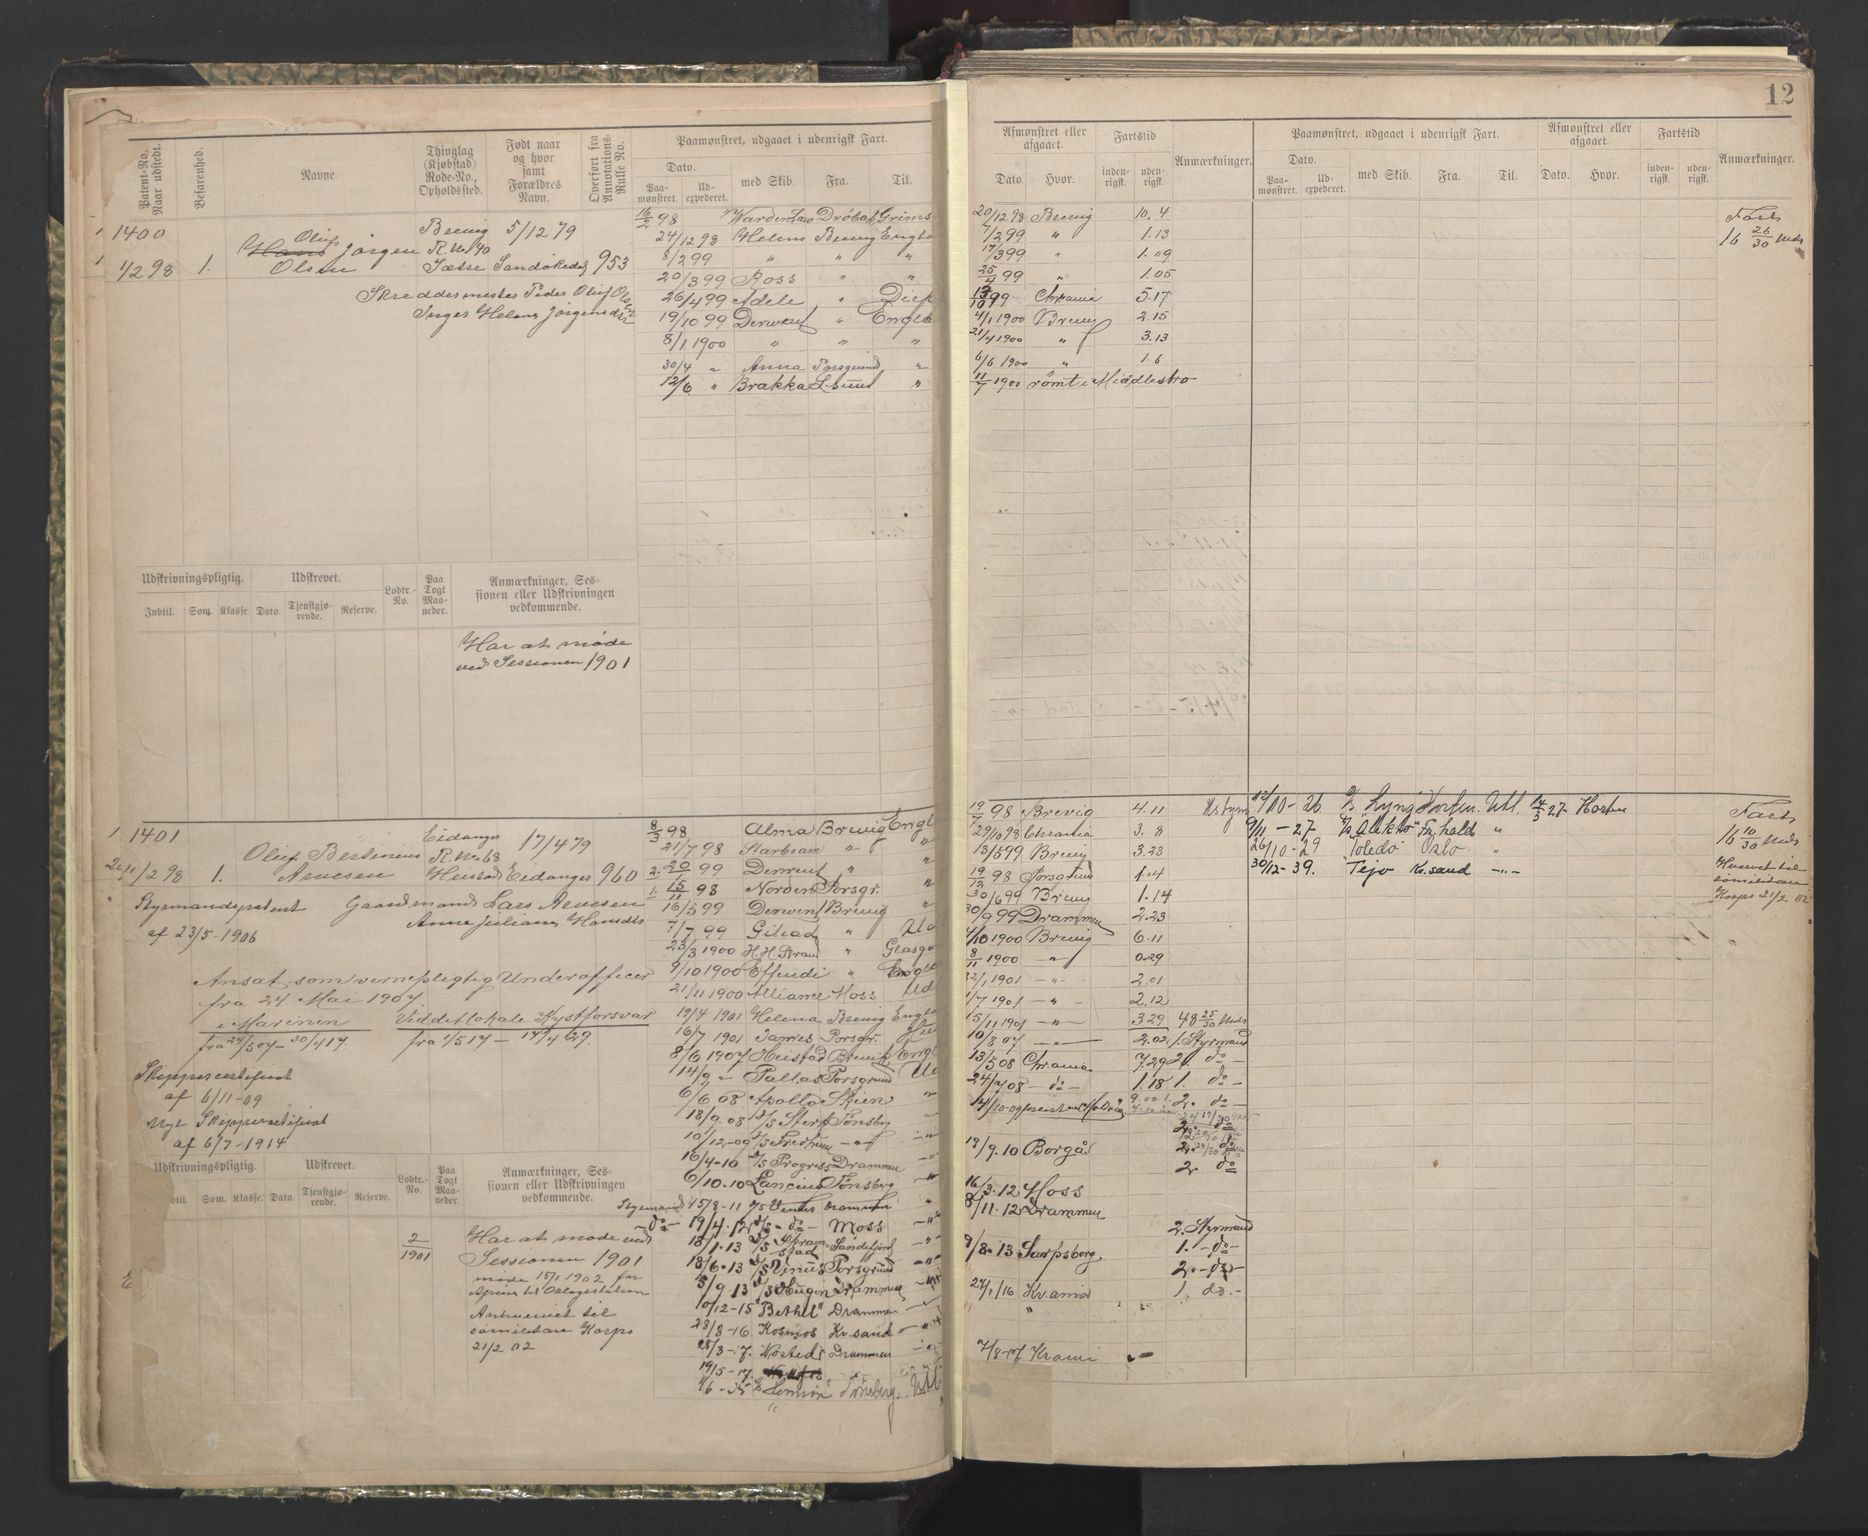 12
Patent-No. Naar udstedt.
Befarenhed.
Navne.
Thinglag (Kjøbstad) Rode-No., Opholdssted.
Født naar og hvor samt Forældres Navn.
Overført fra Annotations-Rulle No.
Paamønstret, udgaaet i udenrigsk Fart.
Dato.
Paamønstret.
Udexpederet.
med Skib.
Fra.
Til.
1400
1/2 98
1.
Oluf
Hans Jørgen
Olsen
Brevig 5/12 79
R. No. 40
Sandøkedal 953
Skreddermester Peder Oluf Olsen
Inger Helene Jørgensdtr
16/2 98 Warden Law Drøbak Grims
24/12 98 Helene Brevig Engla
8/2 99 " " "
20/3 99 Ross " "
26/4 99 Adele " Diep
19/10 99 Derwent " Engla
8/1 1900 " " "
30/4 " Anna Porsgrund "
12/6 " Brakka L.sund "
Udskrivningspligtig.
Udskrevet.
Lodtr.-No.
Paa Togt Maaneder.
Anmærkninger, Sessionen eller Udskrivningen vedkommende.
Indtil. Som. Klasse. Dato. Tjenstgjørende. Reserve.
Har at møde
ved Sessionen 1901
1401
1/2 98
1.
Oluf Bertinius
Arnesen
Eidanger 17/4 79
R. No. 68
Heistad Eidanger 960
Styrmandspatent
af 23/5-1906
Gaardmand Lars Arnesen
Anne Juliane Hansdtr
Ansat som vernepligtig Underofficer
fra 24 Mai 1907.
i Marinen
Ved det lokale Kystforsvar
fra 24/5 07 - 30/4 17.
fra 1/5 17 - 17/4 29.
Skippercertifikat
af 6/11-09
Nyt Skippercertifikat
af 6/7-1914
8/3 98 Alma Brevig Engl
21/7 98 Starbeam " "
20/1 99 Derwent " "
15/11 98 Norden Porsgr. "
16/5 99 Derwent Brevig "
7/7 99 Gilead "
23/3 1900 H. H. Strand " Glasgo
9/10 1900 Effendi " Engl
21/11 1900 Alliance Moss Ud
19/4 1901 Helena Brevig Engla
16/7 1901 James Porsgr.
8/6 1907 Heistad Brevik Engl
14/9 " Pallas Porsgrund Ud
6/6 08 Apollo Skien "
18/9. 08 D/S Sterk Tønsberg
10/12-09 D/S Fredheim
16/4-10 D/S Progress Drammen
6/10. 10 Lancing Tønsberg
Styrmand 15/8-11 D/S Venus Drammen "
-do- 19/4. 12 D/S -do- Moss
18/1. 13 D/S Sandefjord
18/6. 13 D/S Venus Porsgrund
5/9. 13 D/S Hugin Drammen
10/12-15 "Bethel" Drammen
28/8-16 Kosmos Kr.sand
28/3-17. Drammen
19/5-17.
Udskrivningspligtig.
Udskrevet.
Lodtr.-No.
Paa Togt Maaneder.
Anmærkninger, Sessionen eller Udskrivningen vedkommende.
Indtil. Som. Klasse. Dato. Tjenstgjørende. Reserve.
2/1901
Har at møde ved
Sessionen 1901
møde 15/1 1902 for
Anhvervet til
sømilitære Korps
21/2 02
Afmønstret eller afgaaet.
Dato. Hvor.
Fartstid
indenrigsk. udenrigsk.
Anmærkninger.
Paamønstret, udgaaet i udenrigsk Fart.
Dato.
Paamønstret. Udexpederet.
med Skib. Fra. Til.
Afmønstret eller afgaaet.
Dato. Hvor.
Fartstid
indenrigsk. udenrigsk.
Anmærkninger.
20/12 98 Brevig 10.4
7/2 99 " 1.13
17/3 99 " 1.09
25/4 99 " 1.05
13/10 99 Chrania 5.17
4/1 1900 Brevig 2.15
21/4 1900 " 3.13
6/6 1900 " 1.6
11/7 1900 rømt i Middlesbro
Farts
16 26/30 Mdr
19/7 98 Brevig 4.11
29/10 98 Chrania 3.8
13/5 99 Brevig 3.23
19/12 98 Porsgrund 1.4
30/6 99 Brevig 1.14
30/9 99 Drammen 2.23
4/10 1900 Brevig 6.11
8/11 1900 -"- 0.29
22/1 1901 -"- 2.01
1/7 1901 -"- 2.12
15/11 1901 -"- 3.29 48 25/30 Mdr
10/8 07 -"- 2.02 1. Styrmand
13/5 08 Chrania 7.29 2. do -
24/7 08 -do- 1.18 1. do -
14/10-09 2. do -
19/9. 10 Borgå 2. do
2. do
16/3. 12 Moss
8/11. 12 Drammen
2. Styrmand
9/8. 13 Sarpsborg. 1. -do-
2. -do-
27/1/16 Kr.ania 1. do. -
7/8-17 Krania
12/10-26 D/S Lyng Horten Utl. 14/3 27 - Horten
9/11-27 D/S "Alekto" Fr.hald "
26/10-29 "Toledo" Oslo "
30/12-39. Tejo Kr.sand -"-
Farts
16 10/30 Mdr
Hvervet til
sømilitære
Korps 21/2 02